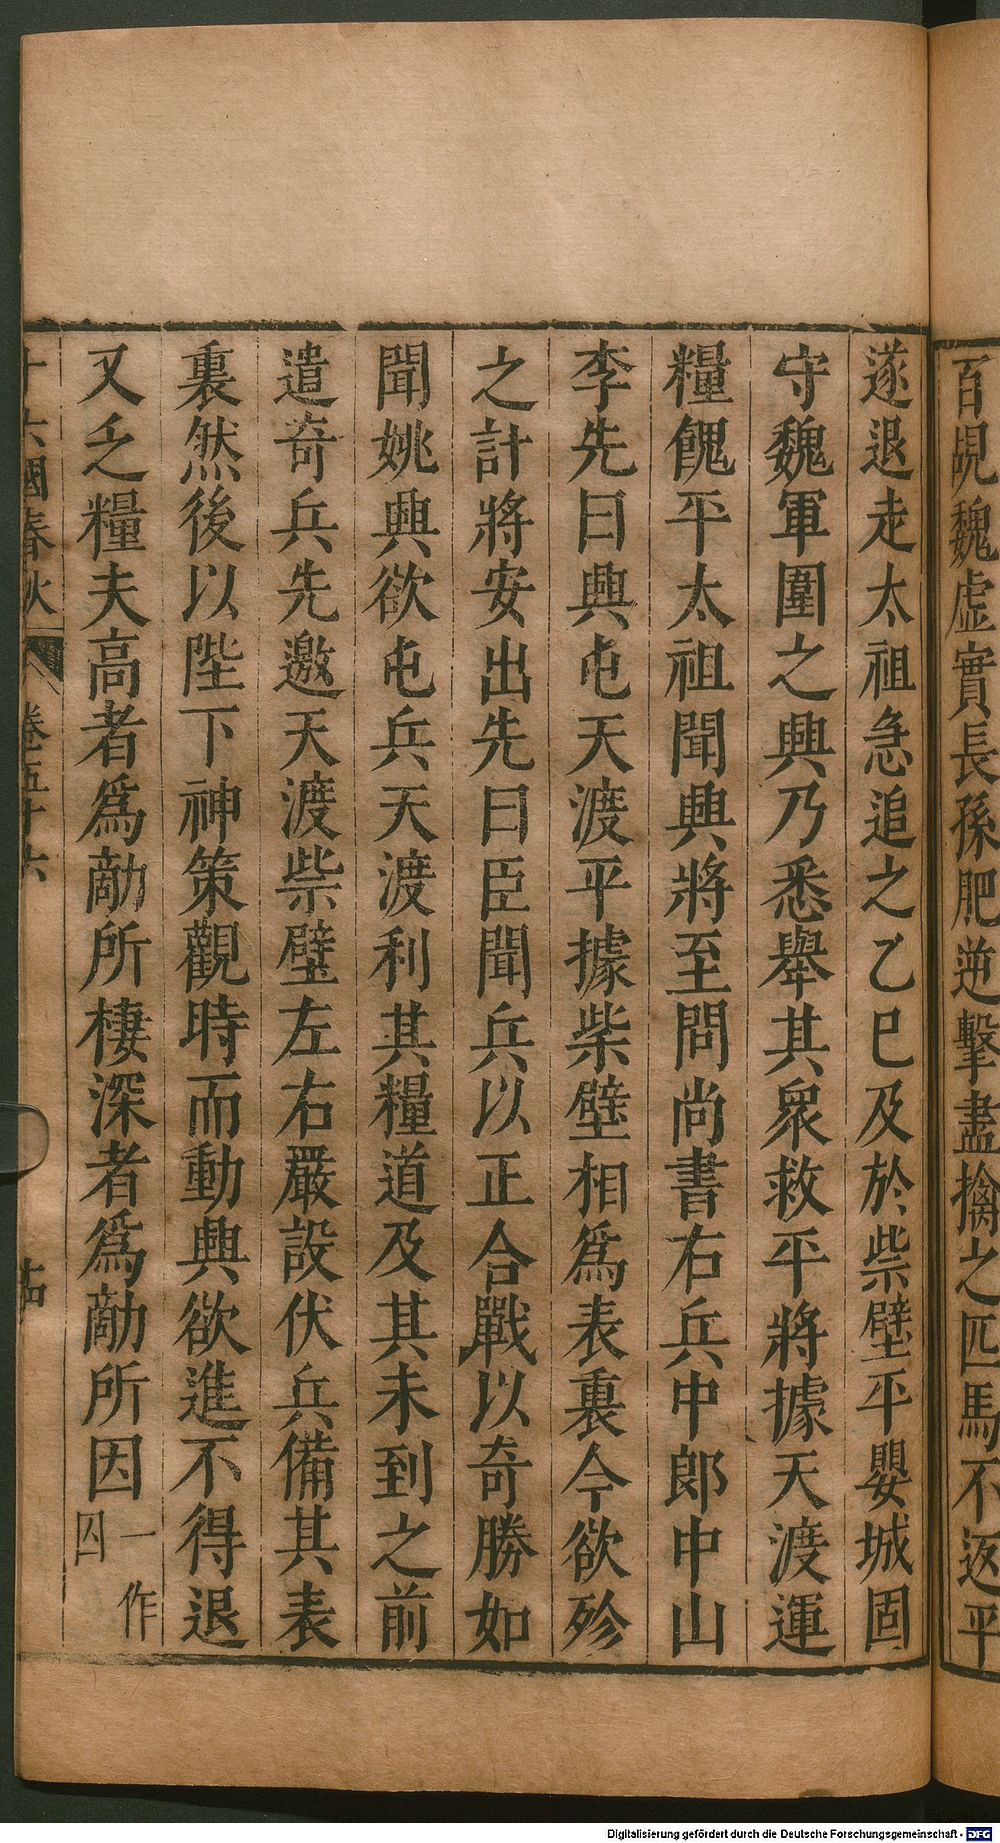 百覘魏虛實長孫肥逆擊盡擒之匹馬不返平
遂退走太祖急追之乙巳及於柴壁平嬰城固
守魏軍圍之興乃悉舉其衆救平將據天渡運
糧餽平太祖聞興將至問尚書右兵中郎中山
李先曰興屯天渡平據柴壁相爲表裏今欲殄
之計將安出先曰臣聞兵以正合戰以奇勝如
聞姚興欲屯兵天渡利其糧道及其未到之前
遣奇兵先邀天渡柴壁左右嚴設伏兵備其表
裏然後以陛下神策觀時而動興欲進不得退
又乏糧夫高者爲敵所棲深者爲敵所因一作囚
十六國春秋 卷五十六
Digitalisierung gefördert durch die Deutsche Forschungsgemeinschaft - DFG